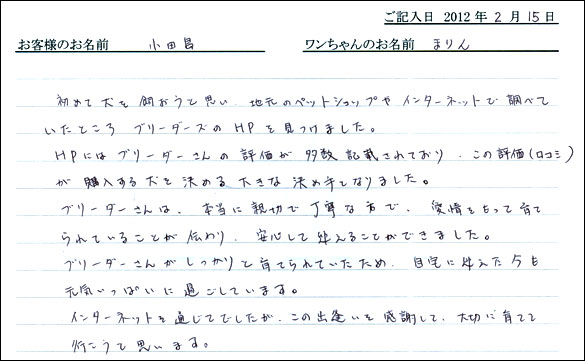 ご記入日 2012 年 2 月 15 日
お客様のお名前 小田島 ワンちゃんのお名前 まりん
初めて犬を飼おうと思い、地元のペットショップやインターネットで調べて
いたところ ブリーダーズのHPを見つけました。
HPにはブリーダーさんの評価が多数記載されており、この評価(口コミ)
が購入する犬を決める大きな決め手となりました。
ブリーダーさんは、本当に親切で丁寧な方で、愛情をもって育て
られていることが伝わり、安心して迎えることができました。
ブリーダーさんがしっかりと育てられていたため、自宅に迎えた今も
元気いっぱいに過ごしています。
インターネットを通じてでしたが、この出逢いを感謝して、大切に育てて
行こうと思います。